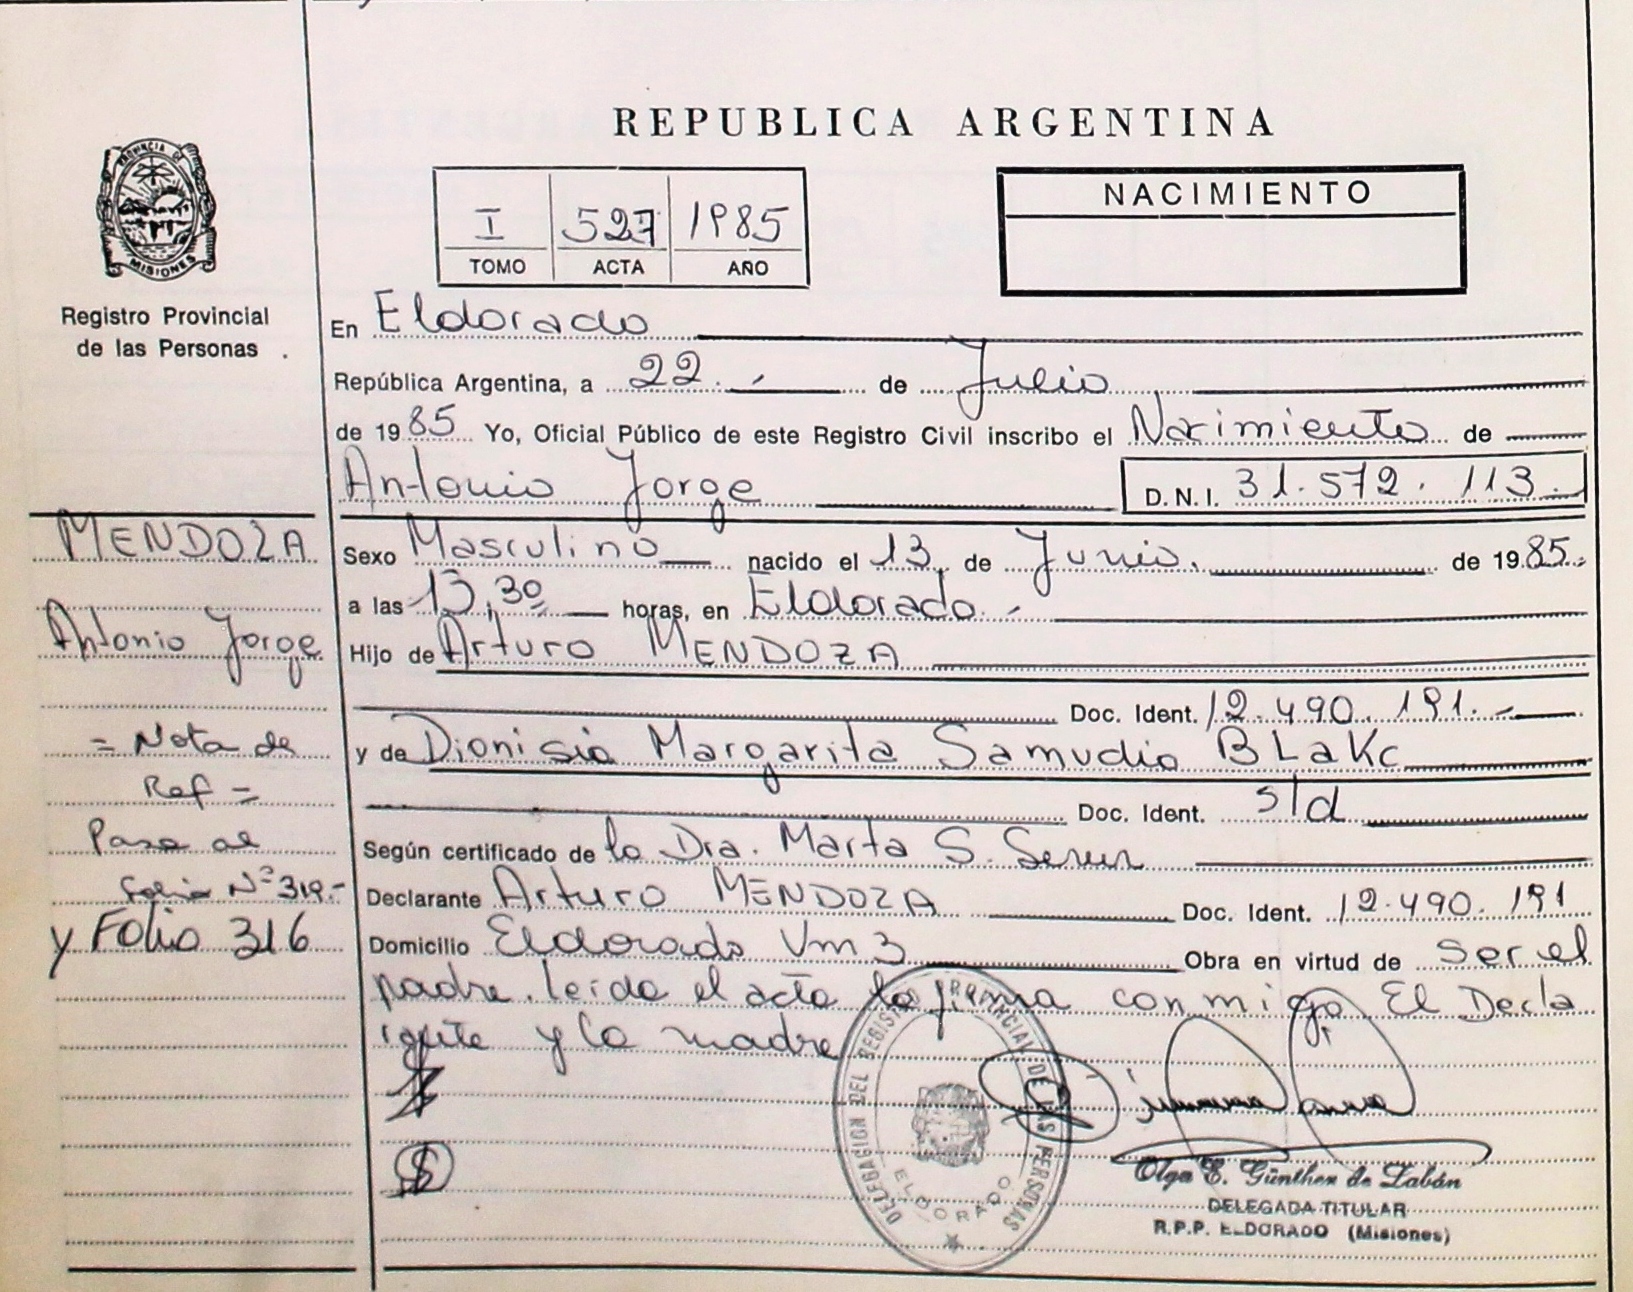 REPUBLICA ARGENTINA
PROVINCIA DE
MISIONES
Registro Provincial
de las Personas
I 527 1985
TOMO ACTA AÑO
NACIMIENTO
En Eldorado
República Argentina, a 22.- de Julio
de 1985 Yo, Oficial Público de este Registro Civil inscribo el Nacimiento de
Antonio Jorge D.N.I. 31.572.113.
MENDOZA
Antonio Jorge
= Nota de
Ref =
Pasa al
Folio Nº 319.-
y Folio 316
Sexo Masculino nacido el 13, de Junio. de 1985.-
a las 13,30 horas, en Eldorado.-
Hijo de Arturo MENDOZA
Doc. Ident. 12.490.191.-
y de Dionisia Margarita Samudio BLaKc
Doc. Ident. s/d
Según certificado de la Dra. Marta S.
Declarante Arturo MENDOZA Doc. Ident. 12.490.191
Domicilio Eldorado Vm 3 Obra en virtud de ser el
padre. leida el acta la firma conmigo El Decla
rante y la madre
DELEGACION DEL REGISTRO PROVINCIAL DE LAS PERSONAS
ELDORADO
Olga E. Günther de Labán
DELEGADA TITULAR
R.P.P. ELDORADO (Misiones)